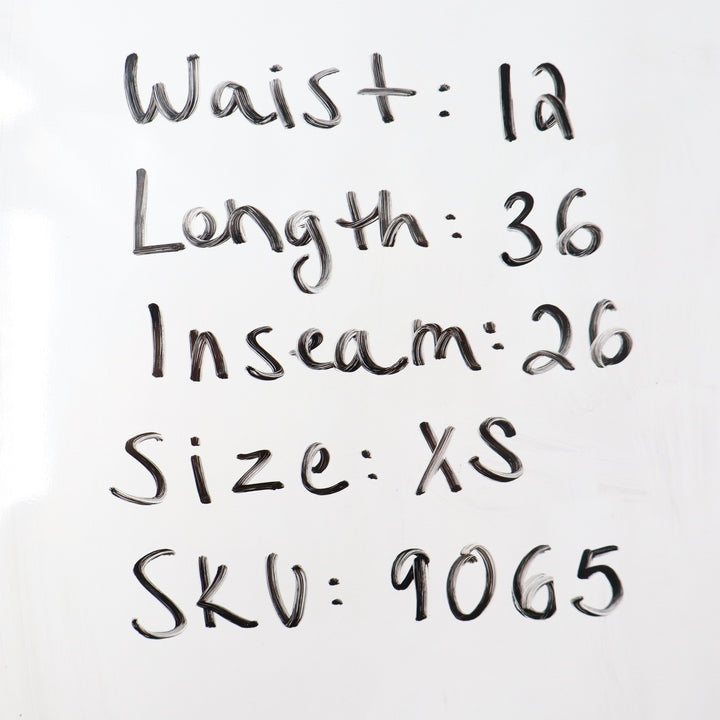 Waist: 12
Length: 36
Inseam: 26
Size: XS
SKU: 9065